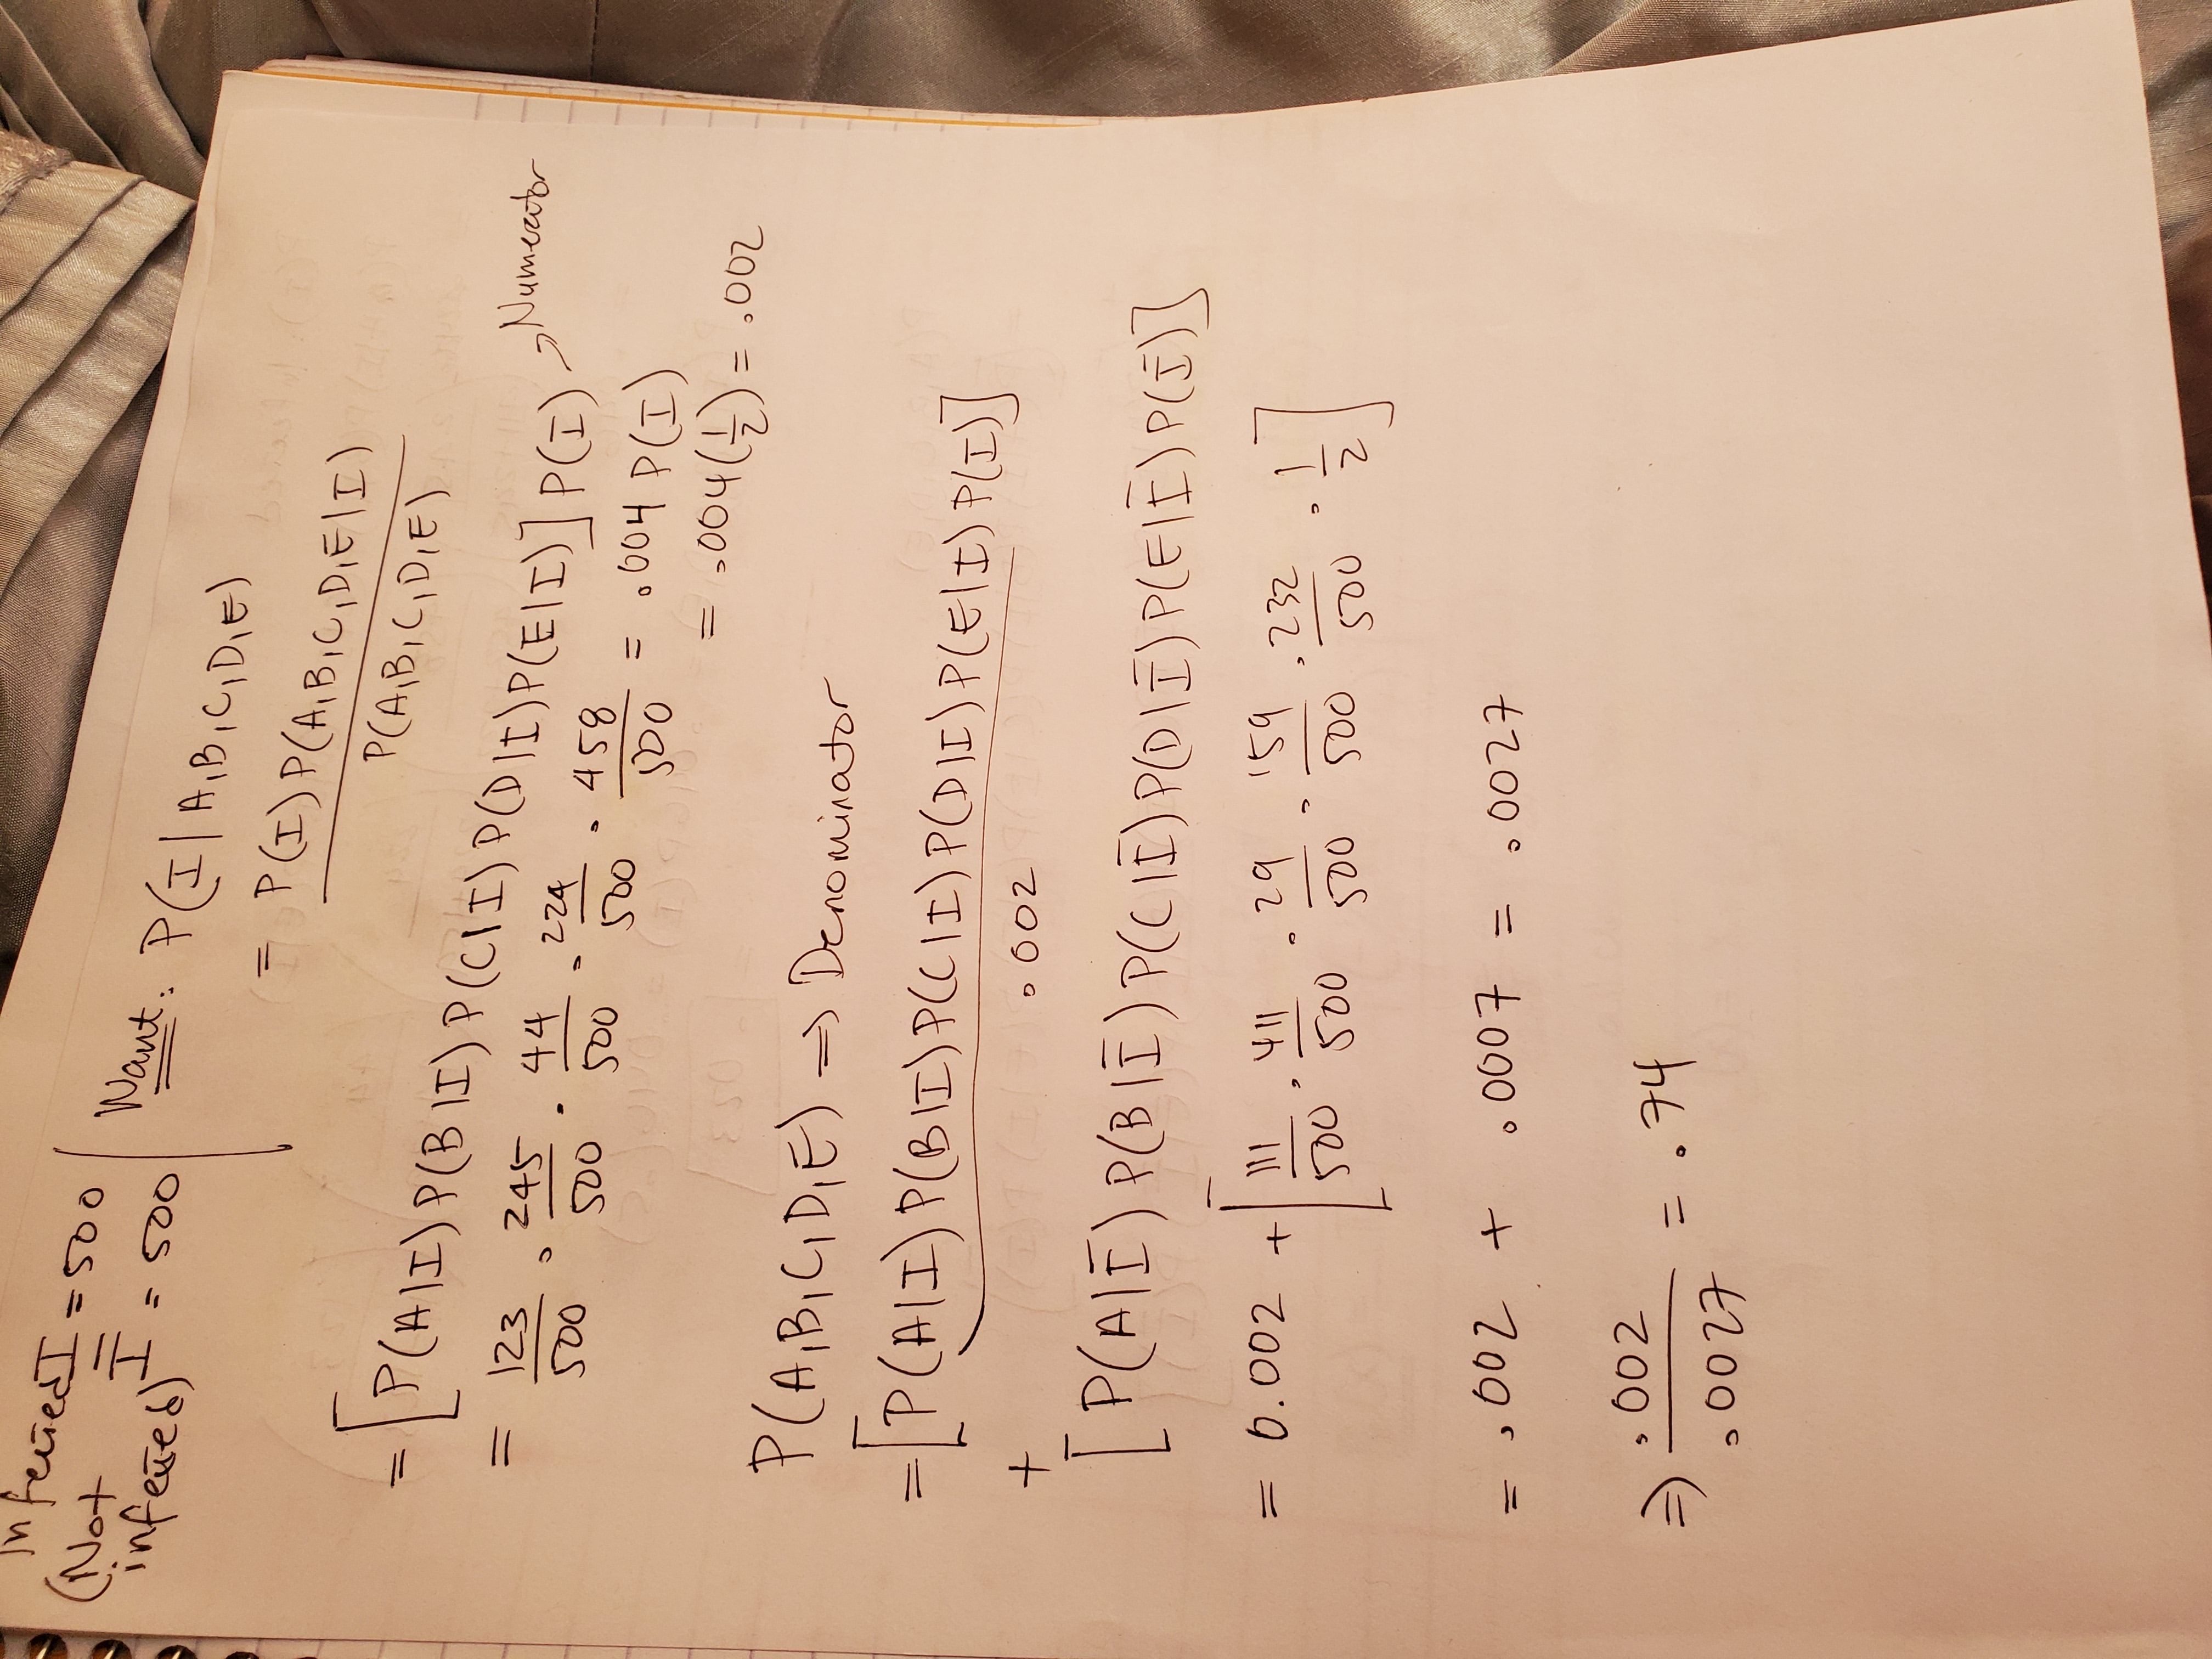 Infected I = 500
(Not infected) Ī = 500
Want: P(I | A,B,C,D,E)
= P(I) P(A,B,C,D,E | I) / P(A,B,C,D,E)
= [P(A|I) P(B|I) P(C|I) P(D|I) P(E|I)] P(I) → Numerator
= 123/500 · 245/500 · 44/500 · 224/500 · 458/500 = .004 P(I)
= .004(1/2) = .002
P(A,B,C,D,E) ⇒ Denominator
= [P(A|I) P(B|I) P(C|I) P(D|I) P(E|I) P(I)]
.002
+
[P(A|Ī) P(B|Ī) P(C|Ī) P(D|Ī) P(E|Ī) P(Ī)]
= 0.002 + [111/500 · 411/500 · 29/500 · 159/500 · 232/500 · 1/2]
= .002 + .0007 = .0027
⇒ .002/.0027 = .74